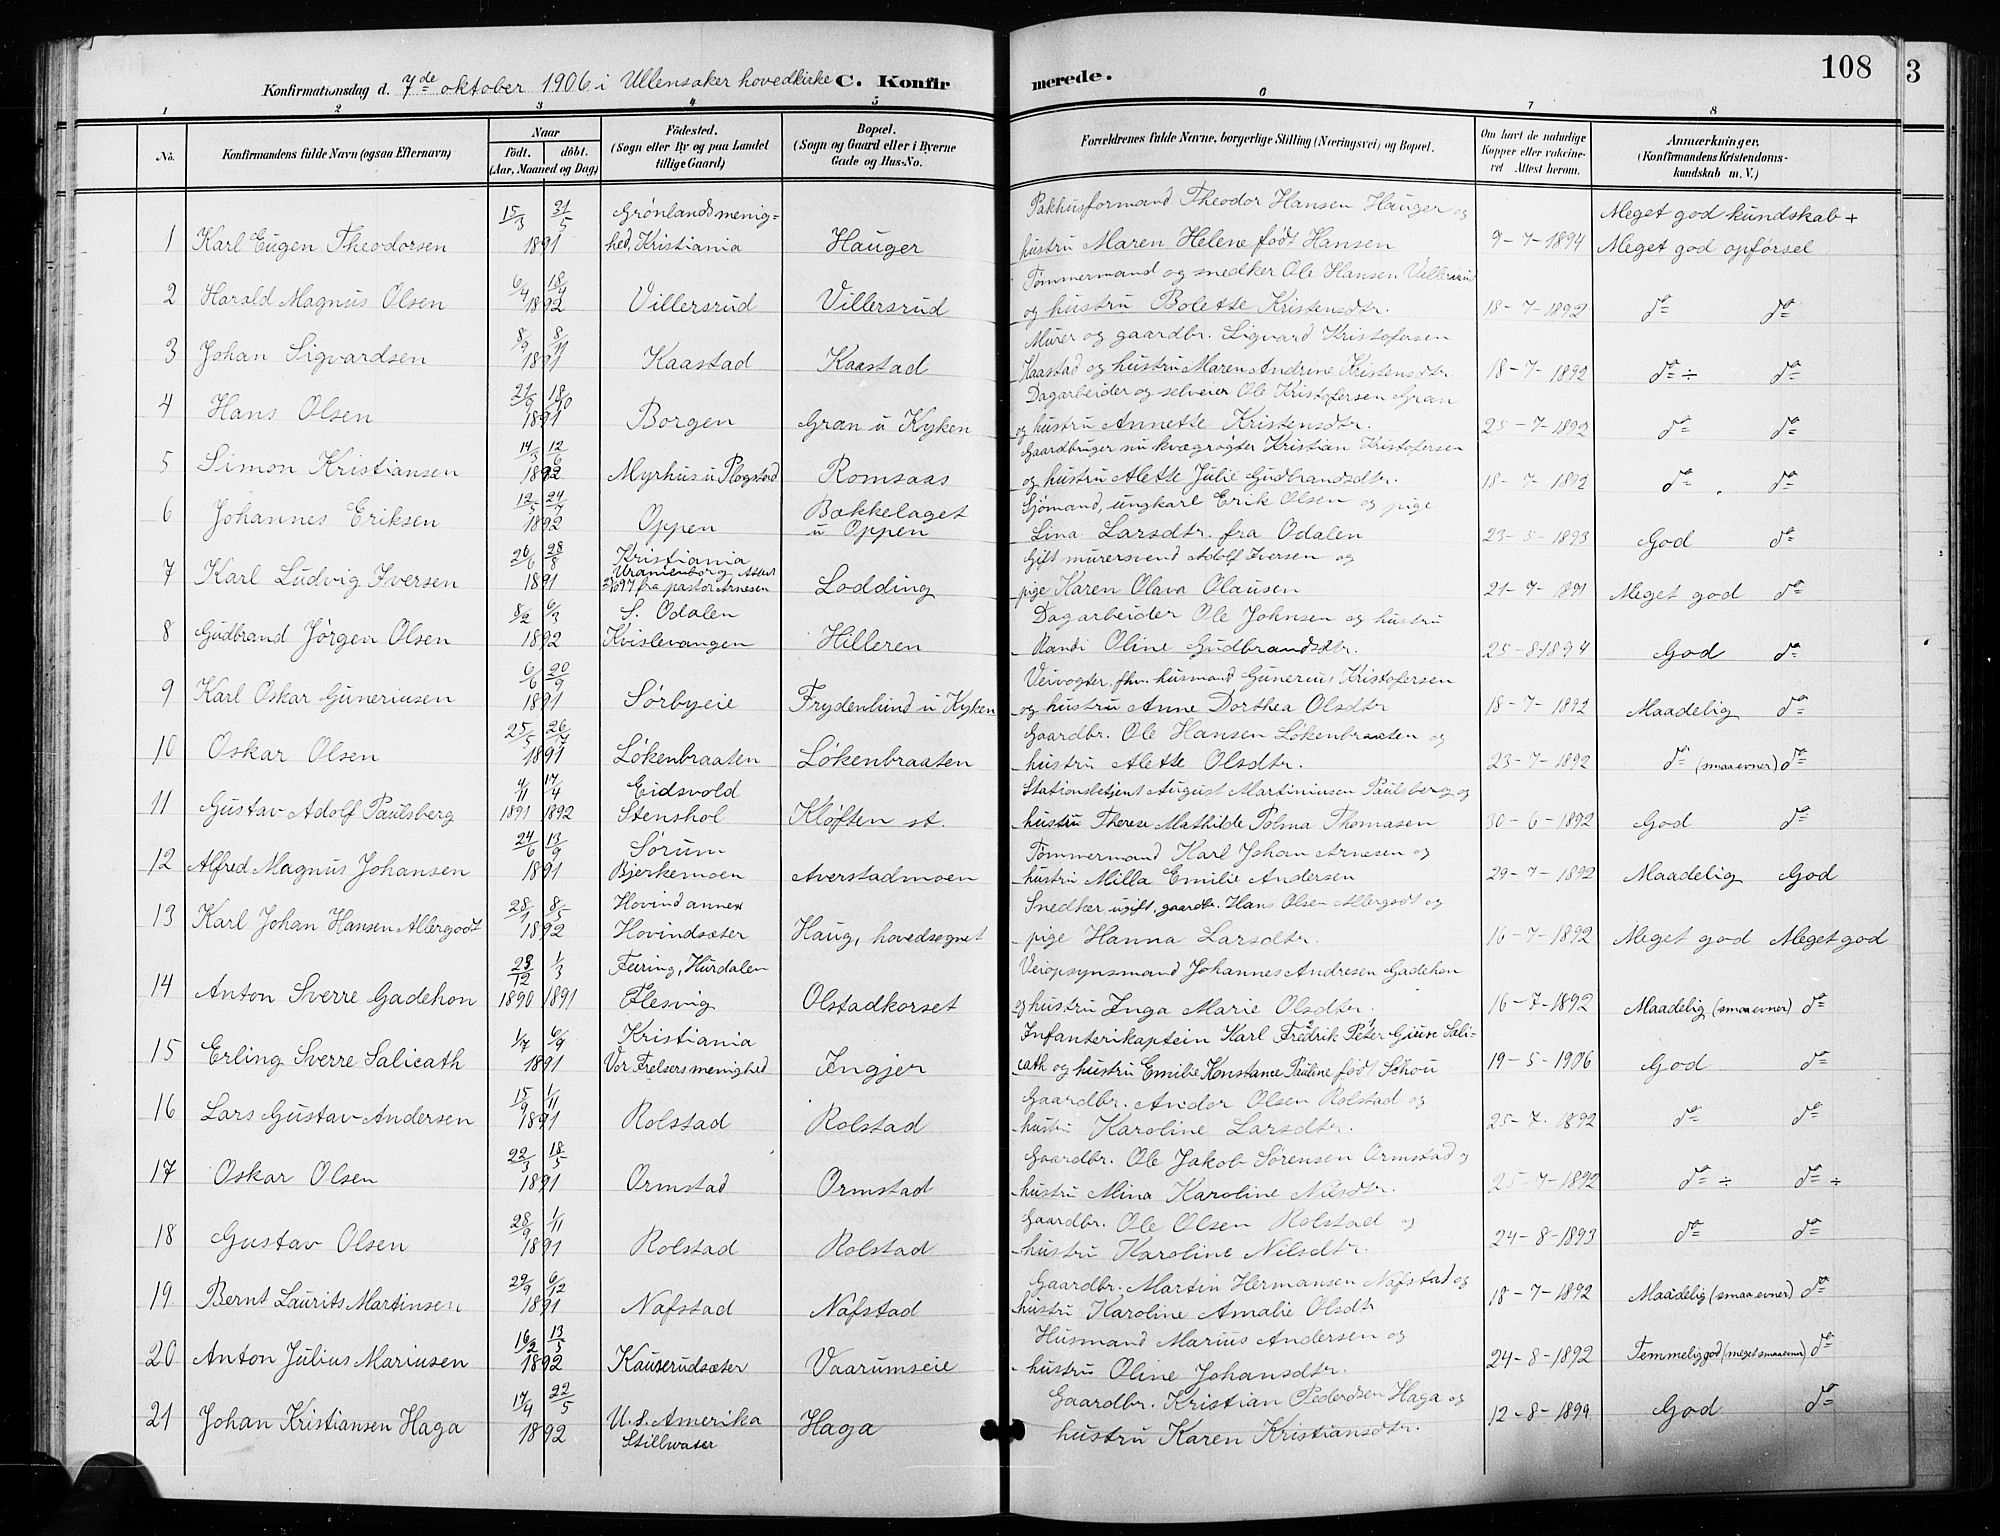 108
3
Konfirmationsdag d. 7de oktober 1906 i Ullensaker hovedkirke C. Konfirmerede.
1 2 3 4 5 6 7 8
No.
Konfirmandens fulde Navn (ogsaa Efternavn)
Naar
Födt. döbt.
(Aar, Maaned og Dag)
Födested.
(Sogn eller By og paa Landet
tillige Gaard)
Bopæl.
(Sogn og Gaard eller i Byerne
Gade og Hus-No.
Forældrenes fulde Navne, borgerlige Stilling (Næringsvei) og Bopæl.
Om havt de naturlige
Kopper eller vakcine-
ret Attest herom.
Anmærkninger.
(Konfirmandens Kristendoms-
kundskab m. V.)
15/3 31/5 Grönlandsmenig= Pakhusformand Theodor Hansen Hauger og Meget god kundskab +
1 Karl Eugen Theodorsen 1891 hed, Kristiania Hauger hustru Maren Helene født Hansen 9-7-1894 Meget god opförsel
6/4 18/4 Tømmermand og snedker Ole Hansen Villersrud
2 Harald Magnus Olsen 1892 Villersrud Villersrud og hustru Bolette Kristensdtr. 18-7-1892 do do
8/9 8/11 Murer og gaardbr. Sigvard Kristofersen
3 Johan Sigvardsen 1891 Kaastad Kaastad Kaastad og hustru Maren Andrine Kristensdtr. 18-7-1892 do ÷ do
21/9 18/10 Dagarbeider og selveier Ole Kristofersen Gran
4 Hans Olsen 1891 Borgen Gran u Kyken og hustru Annette Kristensdtr. 25-7-1892 do do
14/3 12/6 Gaardbruger nu kvægrøgter Kristian Kristofersen
5 Simon Kristiansen 1892 Myrhus u Plogstad Romsaas og hustru Alette Julie Gudbrandsdtr. 18-7-1892 do do
12/5 24/7 Bakkelaget Sjømand, ungkarl Erik Olsen og pige
6 Johannes Eriksen 1892 Oppen u Oppen Lina Larsdtr. fra Odalen 23-5-1893 God do
26/6 28/8 Kristiania Gift murersvend Adolf Iversen og
Uranienborg Attest
7 Karl Ludvig Iversen 1891 fra pastor Arnesen Lodding pige Karen Olava Olausen 21-7-1891 Meget god do
8/2 6/3 S. Odalen Dagarbeider Ole Johnsen og hustru
8 Gudbrand Jørgen Olsen 1892 Kvislevangen Hilleren Randi Oline Gudbrandsdtr. 25-8-1894 God do
6/6 20/9 Veivogter, fhv. husmand Gunerius Kristofersen
9 Karl Oskar Guneriusen 1891 Sørbyeie Frydenlund u Kyken og hustru Anne Dorthea Olsdtr 18-7-1892 Maadelig do
25/5 26/7 Gaardbr. Ole Hansen Løkenbraaten og
10 Oskar Olsen 1891 Løkenbraaten Løkenbraaten hustru Alette Olsdtr. 23-7-1892 do (smaa evner) do
4/11 17/4 Eidsvold Stationsbetjent August Martiniusen Paulsberg og
11 Gustav Adolf Paulsberg 1891 1892 Stenshol Kløften st. hustru Therese Mathilde Polma Thomasen 30-6-1892 God do
24/6 13/9 Sørum Tømmermand Karl Johan Arnesen og
12 Alfred Magnus Johansen 1891 Bjerkemoen Averstadmoen hustru Milla Emilie Andersen 29-7-1892 Maadelig God
28/1 8/5 Hovind annex Snedker ugift, gaardbr. Hans Olsen Allergodt og
13 Karl Johan Hansen Allergodt 1892 Hovindsæter Haug, hovedsognet pige Hanna Larsdtr. 16-7-1892 Meget god Meget god
28/12 1/3 Feiring, Hurdalen Veiopsynsmand Johannes Andresen Gadehon
14 Anton Sverre Gadehon 1890 1891 Flesvig Olstadkorset og hustru Inga Marie Olsdtr. 16-7-1892 Maadelig (smaa evner) do
1/7 6/9 Kristiania Infanterikaptein Karl Fredrik Peter Giuse Sali-
15 Erling Sverre Salicath 1891 Vor Frelsers menighed Ingjer cath og hustru Emilie Konstance Pauline født Schou 19-5-1906 God do
15/9 1/11 Gaardbr. Andor Olsen Rolstad og
16 Lars Gustav Andersen 1891 Rolstad Rolstad hustru Karoline Larsdtr. 25-7-1892 do do
22/3 18/5 Gaardbr. Ole Jakob Sørensen Ormstad og
17 Oskar Olsen 1891 Ormstad Ormstad hustru Mina Karoline Nilsdtr. 25-7-1892 do ÷ do ÷
28/9 1/11 Gaardbr. Ole Olsen Rolstad og
18 Gustav Olsen 1891 Rolstad Rolstad hustru Karoline Nilsdtr. 24-8-1893 do do
29/9 6/12 Gaardbr. Martin Hermansen Nafstad og
19 Bernt Laurits Martinsen 1891 Nafstad Nafstad hustru Karoline Amalie Olsdtr 18-7-1892 Maadelig (smaa evner) do
16/2 13/5 Husmand Marius Andersen og
20 Anton Julius Mariusen 1892 Kauserudsæter Vaarumseie hustru Oline Johansdtr. 24-8-1892 Temmelig god (meget smaa evner) do
17/4 22/5 Gaardbr. Kristian Pedersen Haga og
21 Johan Kristiansen Haga 1892 U. S. Amerika Haga hustru Karen Kristiansdtr. 12-8-1899 God do
Stillwater